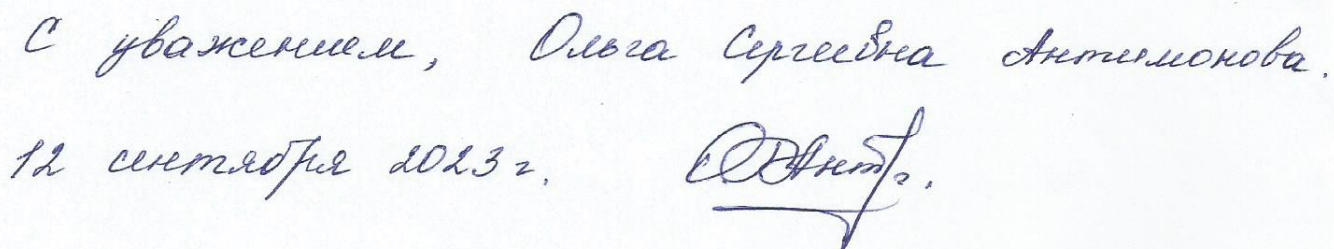 С уважением, Ольга Сергеевна Антимонова.
12 сентября 2023 г.